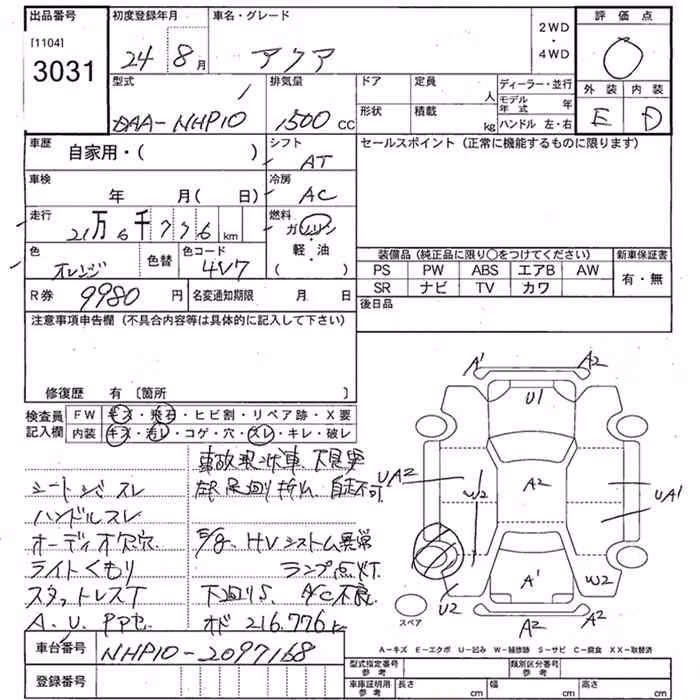 出品番号 初度登録年月 車名・グレード 2WD・4WD 評価点
[1104]
3031
24 8月 アクア
型式 排気量 ドア 定員 人 ディーラー・並行
外装 内装
形状 積載 kg モデル年式 年
DAA-NHP10 1500 CC ハンドル 左・右 E D
車歴 シフト セールスポイント (正常に機能するものに限ります)
自家用・( ) AT
車検 冷房
年 月( 日) AC
走行 燃料
21万6千776km ガソリン・軽油
色 色替 色コード
オレンジ 4V7 ( )
装備品 (純正品に限り○をつけてください) 新車保証書
PS PW ABS エアB AW 有・無
SR ナビ TV カワ
R券 9980円 名変通知期限 月 日 後日品
注意事項申告欄 (不具合内容等は具体的に記入して下さい)
修復歴 有 〔箇所 〕
検査員記入欄 FW キズ・飛石・ヒビ割・リペア跡・X要
内装 キズ・汚レ・コゲ・穴・スレ・キレ・破レ
事故現状車
シートシミスレ 自走不可
ハンドルスレ
オーディオ欠穴 E/g、HVシステム異常
ライトくもり ランプ点灯
スタットレスT 下廻りS A/C不良
オド 216.776k
A1 A2
U1
UA2 W2 A2 UA1
U2 A1 W2
A2 A2
スペア
A−キズ E−エクボ U−凹み W−補修跡 S−サビ C−腐食 XX−取替済
車台番号 NHP10-2097168
型式指定番号参考 類別区分番号参考
登録番号
車庫証明用参考 長さ cm 幅 cm 高さ cm